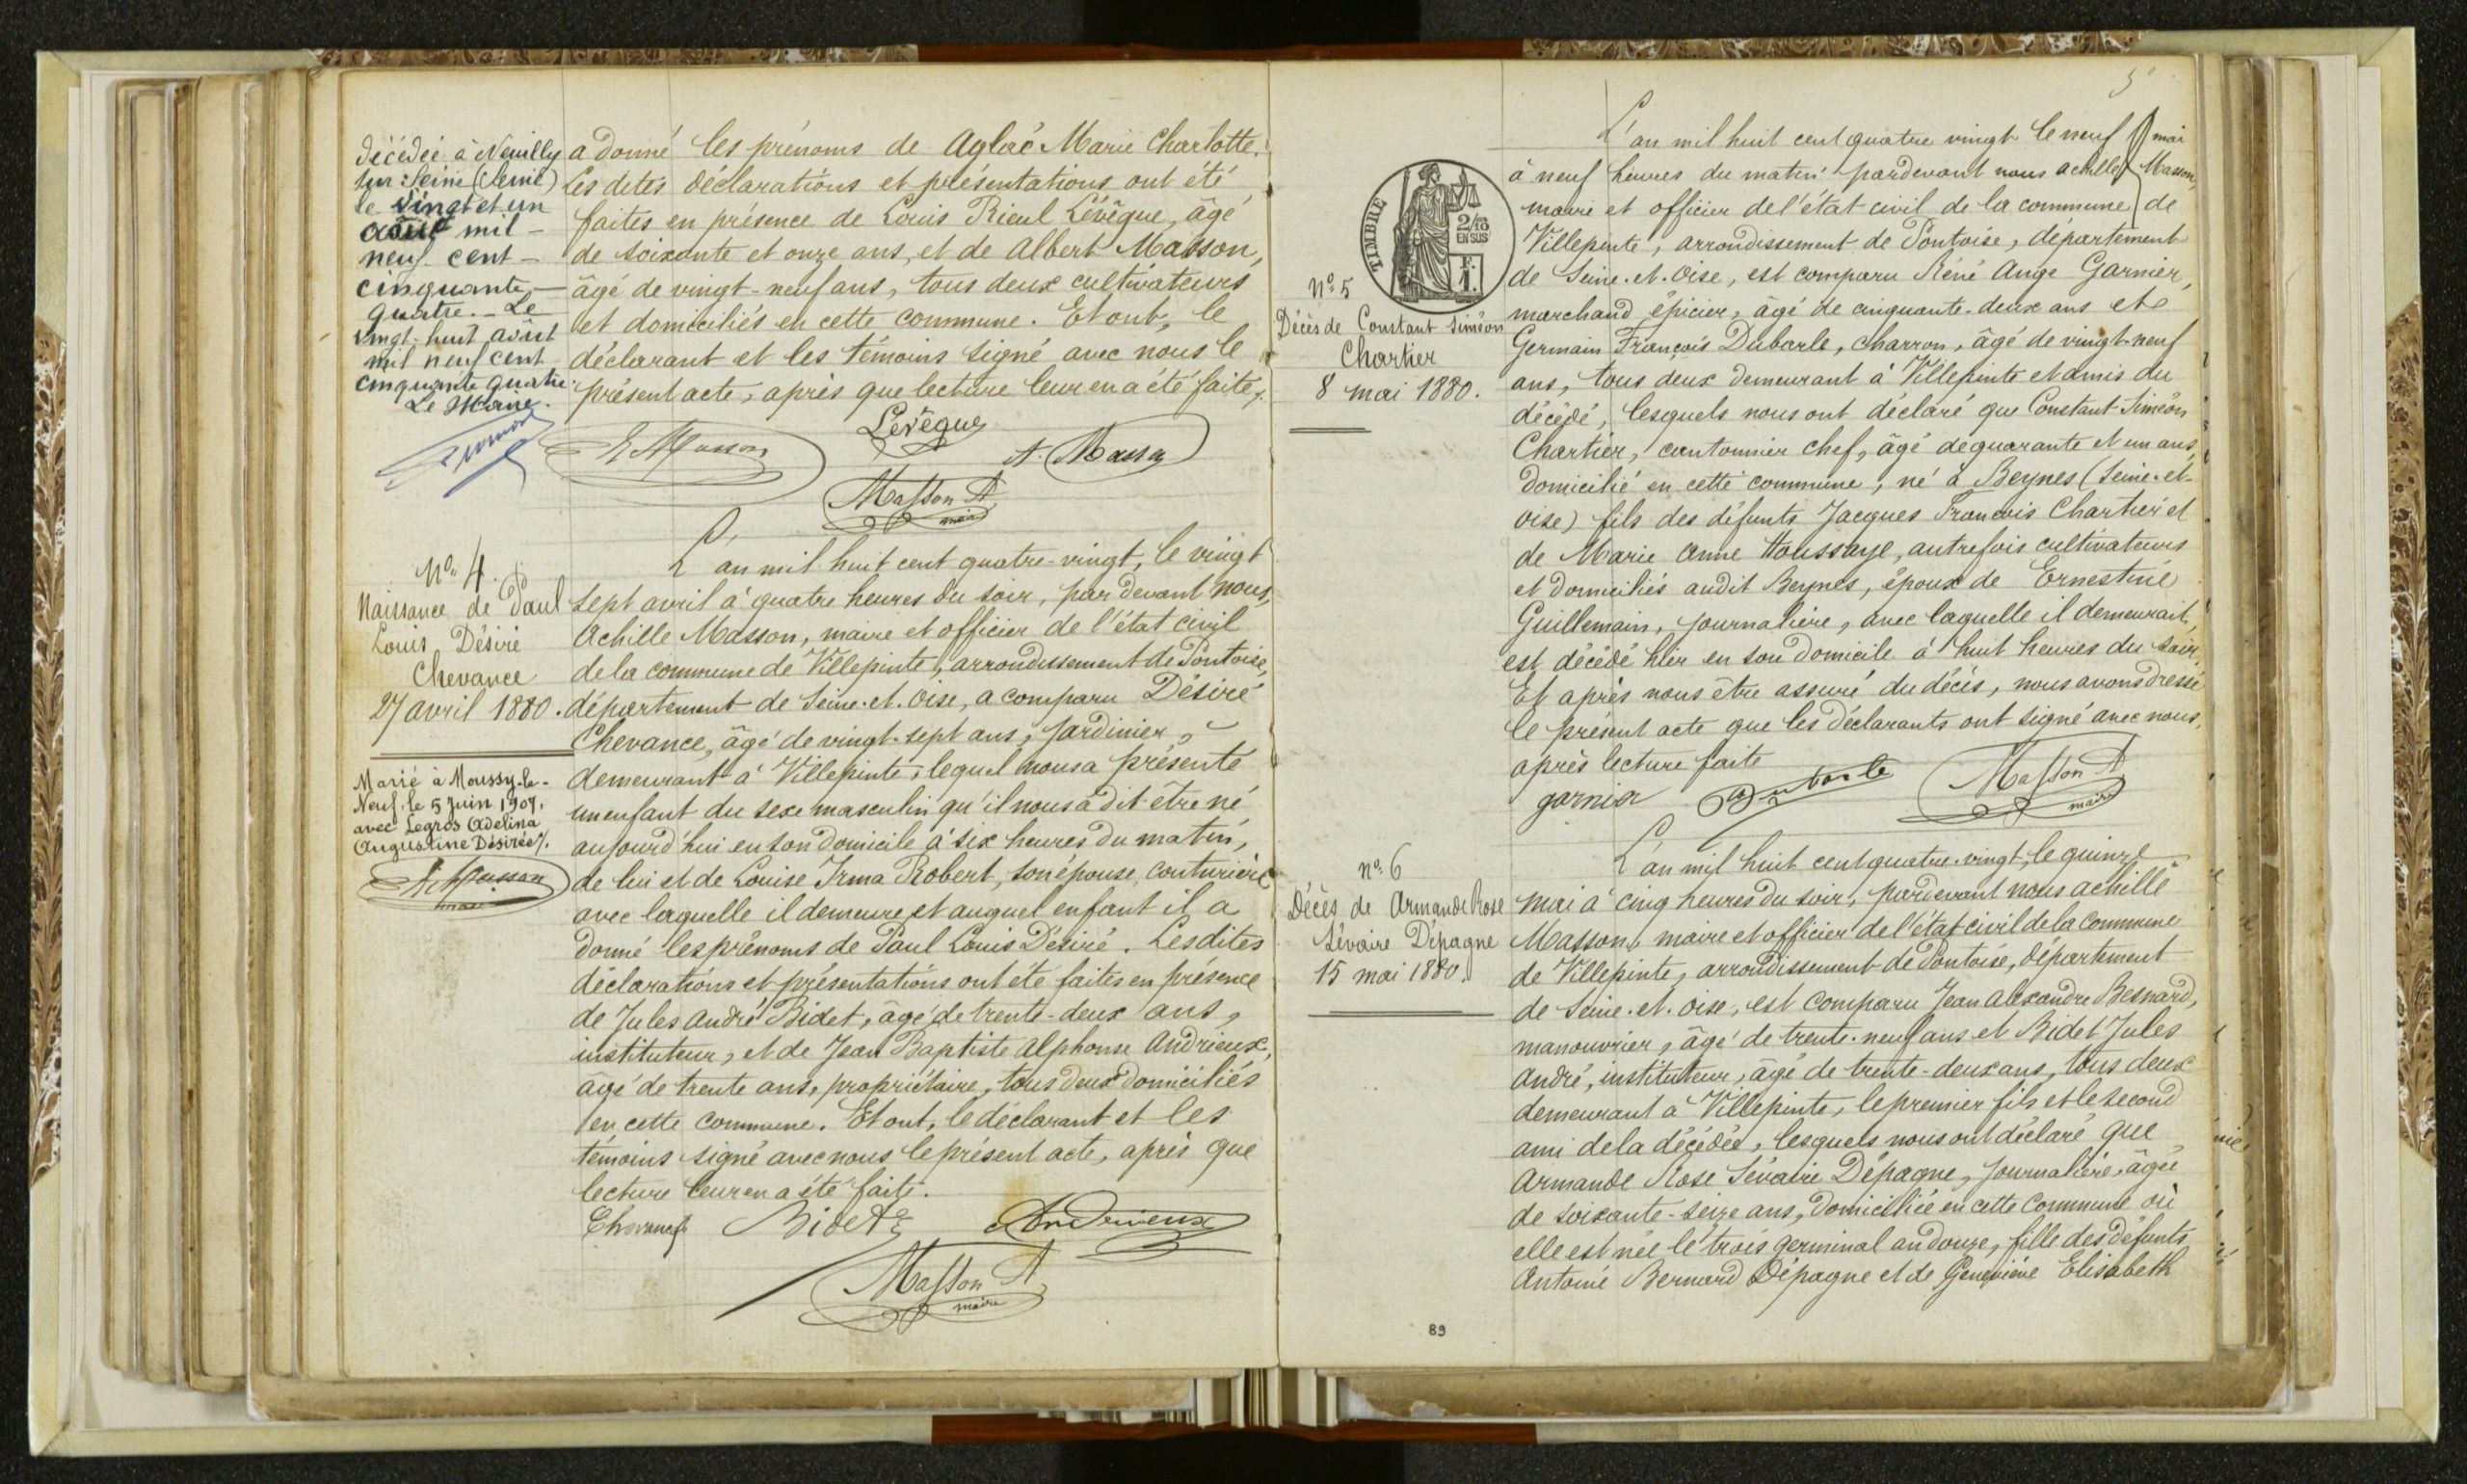 décédée à Neuilly
sur Seine (Seine)
le vingt et un
août mil -
neuf cent -
cinquante -
quatre. - Le
vingt-huit août
mil neuf cent
cinquante quatre
Le Maire.
a donné les prénoms de Aglaé Marie Charlotte.
Les dites déclarations et présentations ont été
faites en présence de Louis Rieul Lévêque, âgé
de soixante et onze ans, et de Albert Masson,
âgé de vingt-neuf ans, tous deux cultivateurs
et domiciliés en cette commune. Et ont, le
déclarant et les témoins signé avec nous le
présent acte, après que lecture leur en a été faite,
Lévêque
E. Masson
A. Masson
Masson A
maire
No. 4.
Naissance de Paul
Louis Désiré
Chevance
27 avril 1880.
Marié à Moussy-le-
Neuf, le 5 Juin 1909,
avec Legros Adelina
Augustine Désirée/.
A. Masson
maire
L'an mil huit cent quatre-vingt, le vingt
sept avril à quatre heures du soir, par devant nous,
Achille Masson, maire et officier de l'état civil
de la commune de Villepinte, arrondissement de Pontoise,
département de Seine-et-Oise, a comparu Désiré
Chevance, âgé de vingt-sept ans, jardinier,
demeurant à Villepinte, lequel nous a présenté
un enfant du sexe masculin qu'il nous a dit être né
aujourd'hui en son domicile à six heures du matin,
de lui et de Louise Irma Robert, son épouse, couturière
avec laquelle il demeure, et auquel enfant il a
donné les prénoms de Paul Louis Désiré. Les dites
déclarations et présentations ont été faites en présence
de Jules André Bidet, âgé de trente-deux ans,
instituteur, et de Jean Baptiste Alphonse Andrieux,
âgé de trente ans, propriétaire, tous deux domiciliés
en cette commune. Et ont, le déclarant et les
témoins signé avec nous le présent acte, après que
lecture leur en a été faite.
Chevance Bidet Andrieux
Masson A
maire
5
TIMBRE
2/10
EN SUS
F.
1.
No. 5
Décès de Constant Siméon
Chartier
8 mai 1880.
L'an mil huit cent quatre vingt le neuf mai
à neuf heures du matin pardevant nous Achille Masson,
maire et officier de l'état civil de la commune de
Villepinte, arrondissement de Pontoise, département
de Seine-et-Oise, est comparu Réné Ange Garnier,
marchand épicier, âgé de cinquante-deux ans et
Germain François Dubarle, charron, âgé de vingt-neuf
ans, tous deux demeurant à Villepinte et amis du
décédé, lesquels nous ont déclaré que Constant Siméon
Chartier, cantonnier chef, âgé de quarante et un ans,
domicilié en cette commune, né à Beynes (Seine-et-
oise) fils des défunts Jacques François Chartier et
de Marie Anne Houssaye, autrefois cultivateurs
et domiciliés audit Beynes, époux de Ernestine
Guillemain, journalière, avec laquelle il demeurait,
est décédé hier en son domicile à huit heures du soir,
Et après nous être assuré du décès, nous avons dressé
le présent acte que les déclarants ont signé avec nous,
après lecture faite
garnier Dubarle Masson A
maire
No. 6
Décès de Armande Rose
Sévaire Dépagne
15 mai 1880.
L'an mil huit cent quatre-vingt, le quinze
mai à cinq heures du soir, pardevant nous Achille
Masson, maire et officier de l'état civil de la commune
de Villepinte, arrondissement de Pontoise, département
de Seine-et-oise, est comparu Jean Alexandre Besnard,
manouvrier, âgé de trente-neuf ans et Bidet Jules
André, instituteur, âgé de trente-deux ans, tous deux
demeurant à Villepinte, le premier fils et le second
ami de la décédée, lesquels nous ont déclaré que
Armande Rose Sévaire Dépagne, journalière, âgée
de soixante-seize ans, domiciliée en cette commune où
elle est née le trois germinal an douze, fille des défunts
Antoine Bernard Dépagne et de Geneviève Elisabeth
89